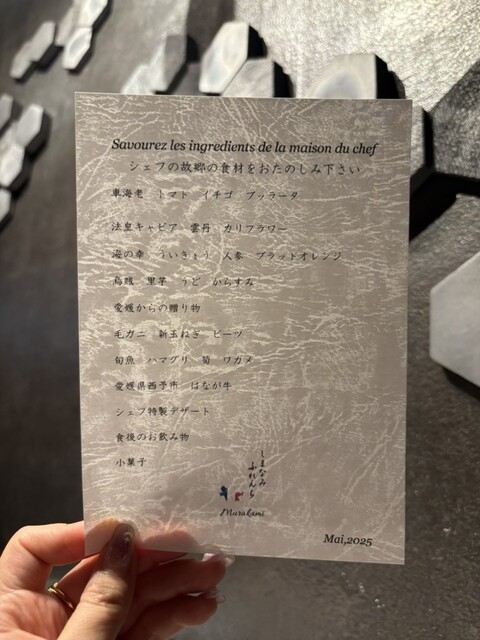 Savourez les ingredients de la maison du chef
シェフの故郷の食材をおたのしみ下さい
車海老 トマト イチゴ ブッラータ
法皇キャビア 雲丹 カリフラワー
海の幸 ういきょう 人参 ブラッドオレンジ
烏賊 里芋 うど からすみ
愛媛からの贈り物
毛ガニ 新玉ねぎ ビーツ
旬魚 ハマグリ 筍 ワカメ
愛媛県西予市 はなが牛
シェフ特製デザート
食後のお飲み物
小菓子
しまなみ
ふれんち
Murakami
Mai,2025